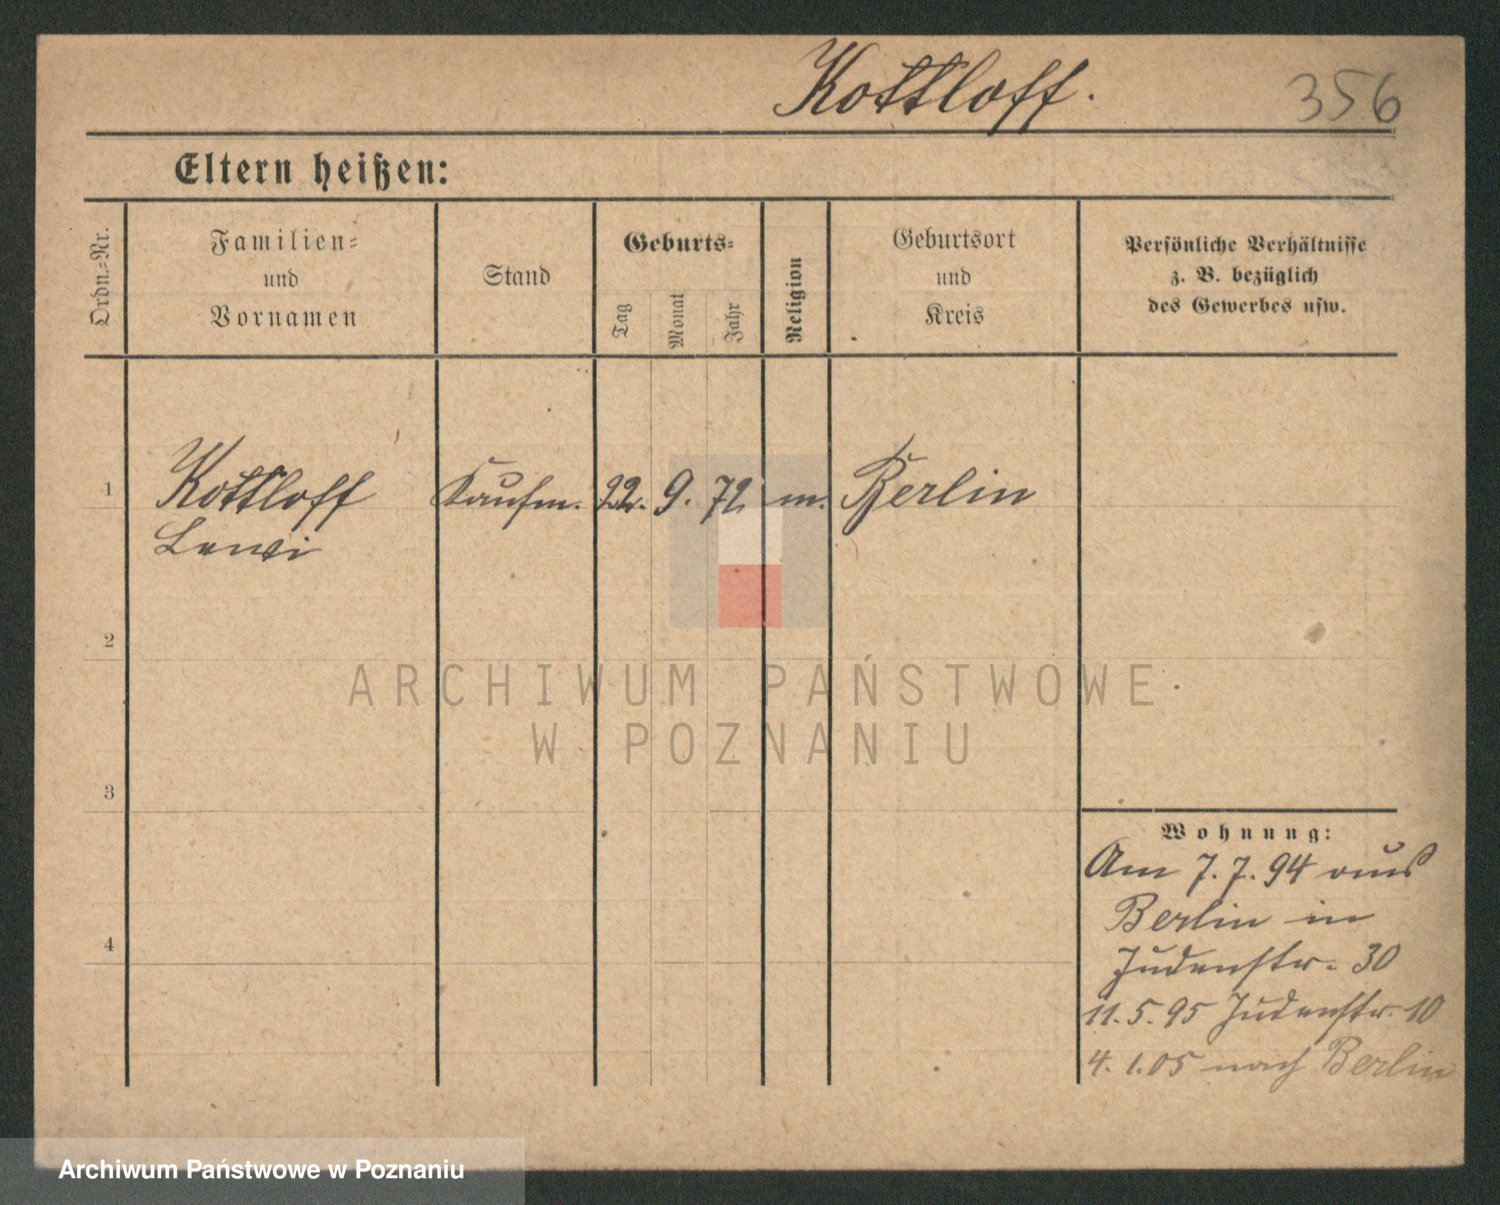 Kottloff.
356
Eltern heißen:
Ordn.-Nr.
Familien-
und
Vornamen
Stand
Geburts-
Tag
Monat
Jahr
Religion
Geburtsort
und
Kreis
Persönliche Verhältnisse
z. B. bezüglich
des Gewerbes usw.
1
Kottloff
Kaufm.
22.
9.
72
m.
Berlin
2
3
4
Wohnung:
Am 7.7.94 aus
Berlin in
Judenstr. 30
11.5.95 Judenstr. 10
4.1.05 nach Berlin
ARCHIWUM PAŃSTWOWE
W POZNANIU
Archiwum Państwowe w Poznaniu